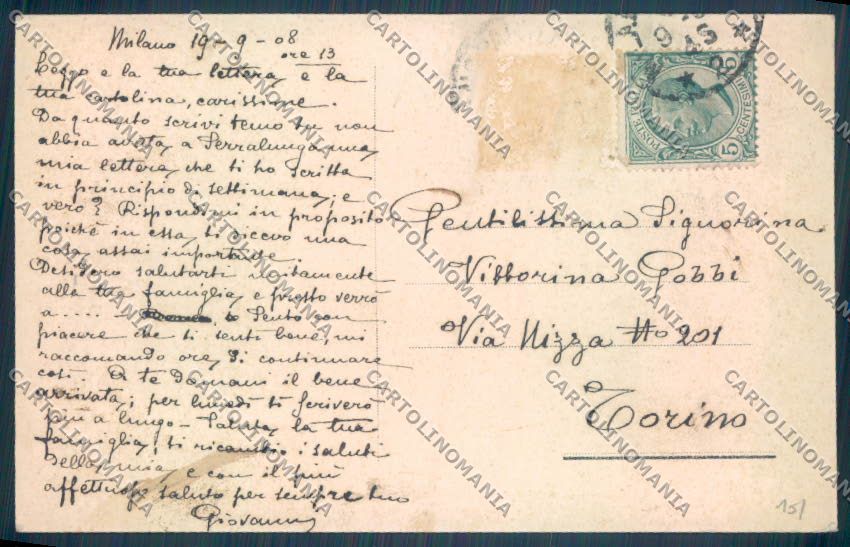 Milano 19-9-08
ore 13
Leggo e la tua lettera, e la
tua cartolina, carissima.
Da quanto scrivi temo tu non
abbia avuta, a Serralunga, una
mia lettera, che ti ho scritta
in principio di settimana; e
vero? Rispondimi in proposito
poichè in essa, ti dicevo una
cosa, assai importante.
Desidero salutarti unitamente
alla tua famiglia, e presto verrò
a.... Sento con
piacere che ti senti bene, mi
raccomando ora, di continuare
così. A te domani il bene
arrivata; per lunedì ti scriverò
più a lungo. Saluta, la tua
famiglia, ti ricambio i saluti
della mia, e con il più
affettuoso saluto per sempre tuo
Giovanni
POSTE
CENTESIMI
5
5
Gentilissima Signorina.
Vittorina Gobbi
Via Nizza No 201
Torino
15/
CARTOLINOMANIA